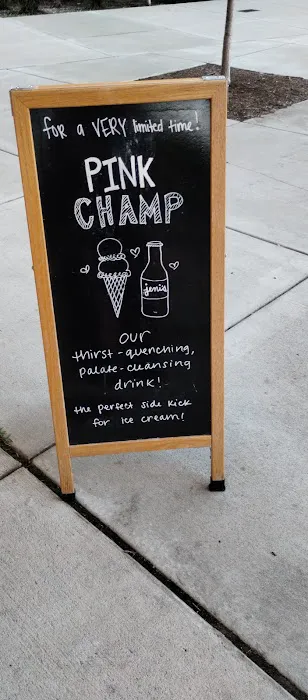 for a VERY limited time!
PINK
CHAMP
jeni's
our
thirst-quenching,
palate-cleansing
drink!
the perfect side kick
for ice cream!